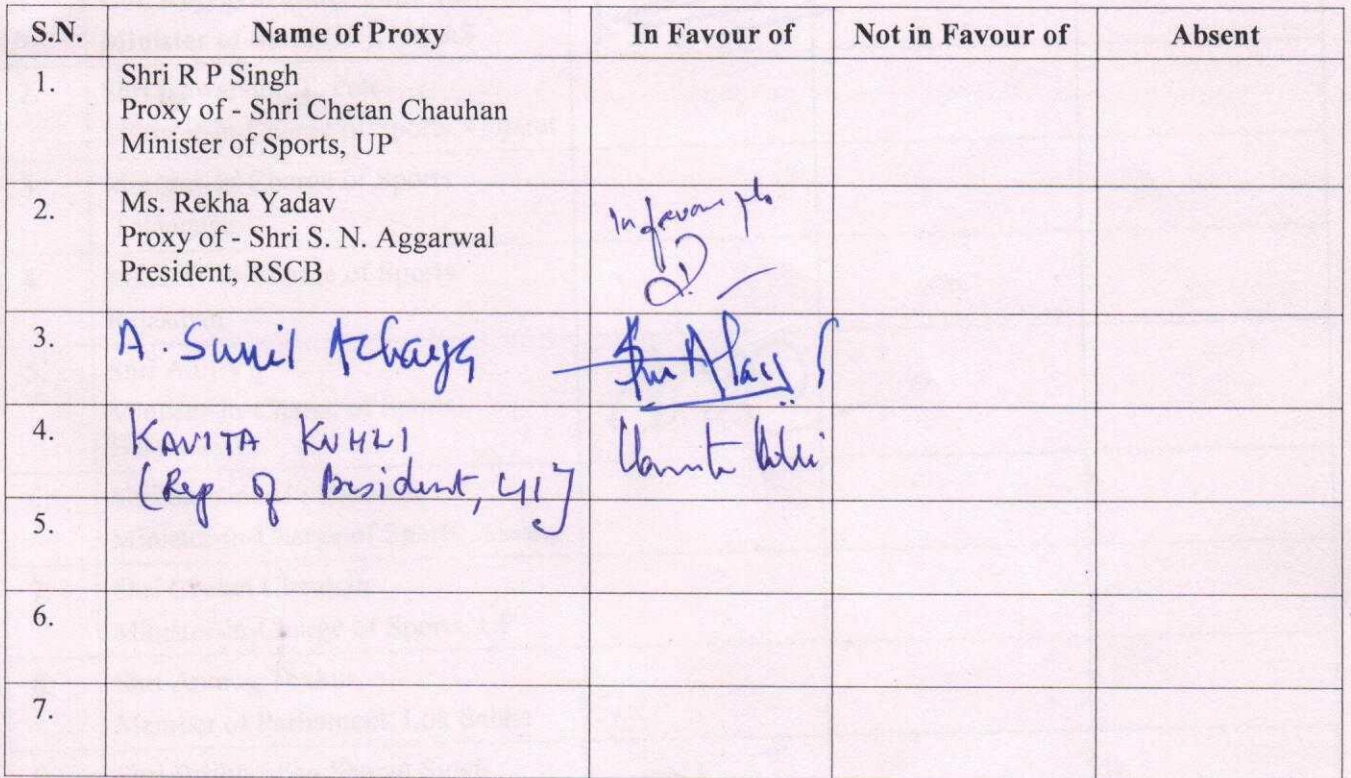 S.N. Name of Proxy In Favour of Not in Favour of Absent
1. Shri R P Singh
Proxy of - Shri Chetan Chauhan
Minister of Sports, UP
2. Ms. Rekha Yadav
Proxy of - Shri S. N. Aggarwal
President, RSCB
In favour
3. A. Sunil Acharya
4. KAVITA KOHLI
(Rep of President,
5.
6.
7.